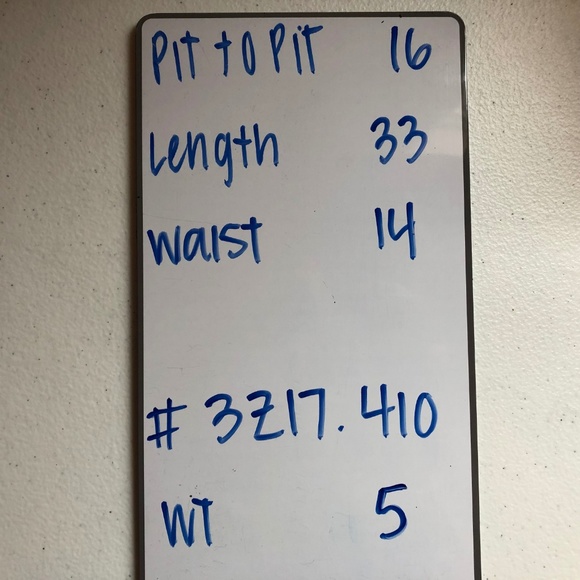 Pit to Pit 16
Length 33
Waist 14
# 3Z17.410
WT 5